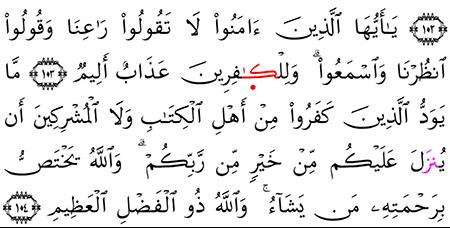 ﴿١٠٢﴾ يَـٰأَيُّهَا ٱلَّذِينَ ءَامَنُوا۟ لَا تَقُولُوا۟ رَٰعِنَا وَقُولُوا۟
ٱنظُرْنَا وَٱسْمَعُوا۟ ۗ وَلِلْكَـٰفِرِينَ عَذَابٌ أَلِيمٌ ﴿١٠٣﴾ مَّا
يَوَدُّ ٱلَّذِينَ كَفَرُوا۟ مِنْ أَهْلِ ٱلْكِتَـٰبِ وَلَا ٱلْمُشْرِكِينَ أَن
يُنزَلَ عَلَيْكُم مِّنْ خَيْرٍ مِّن رَّبِّكُمْ ۗ وَٱللَّهُ يَخْتَصُّ
بِرَحْمَتِهِۦ مَن يَشَآءُ ۚ وَٱللَّهُ ذُو ٱلْفَضْلِ ٱلْعَظِيمِ ﴿١٠٤﴾